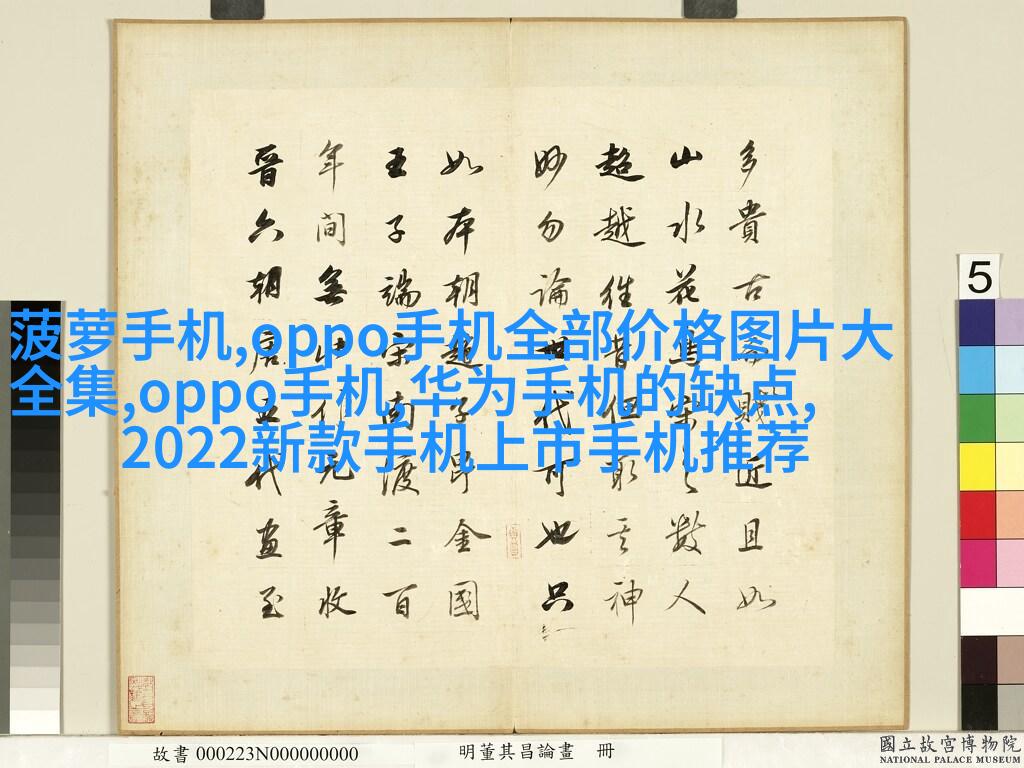 多貴古賤近且如
山水花鳥宋之數人
超越往昔但取其神
妙勿論世代可也只
如本朝趙子昂金國
王子端宋南渡二百
年間無此作元章收
晉六朝唐五代畫至
菠萝手机,oppo手机全部价格图片大
全集,oppo手机,华为手机的缺点,
2022新款手机上市手机推荐
5
故書 000223N000000000
明董其昌論畫 冊
國立故宮博物院
NATIONAL PALACE MUSEUM